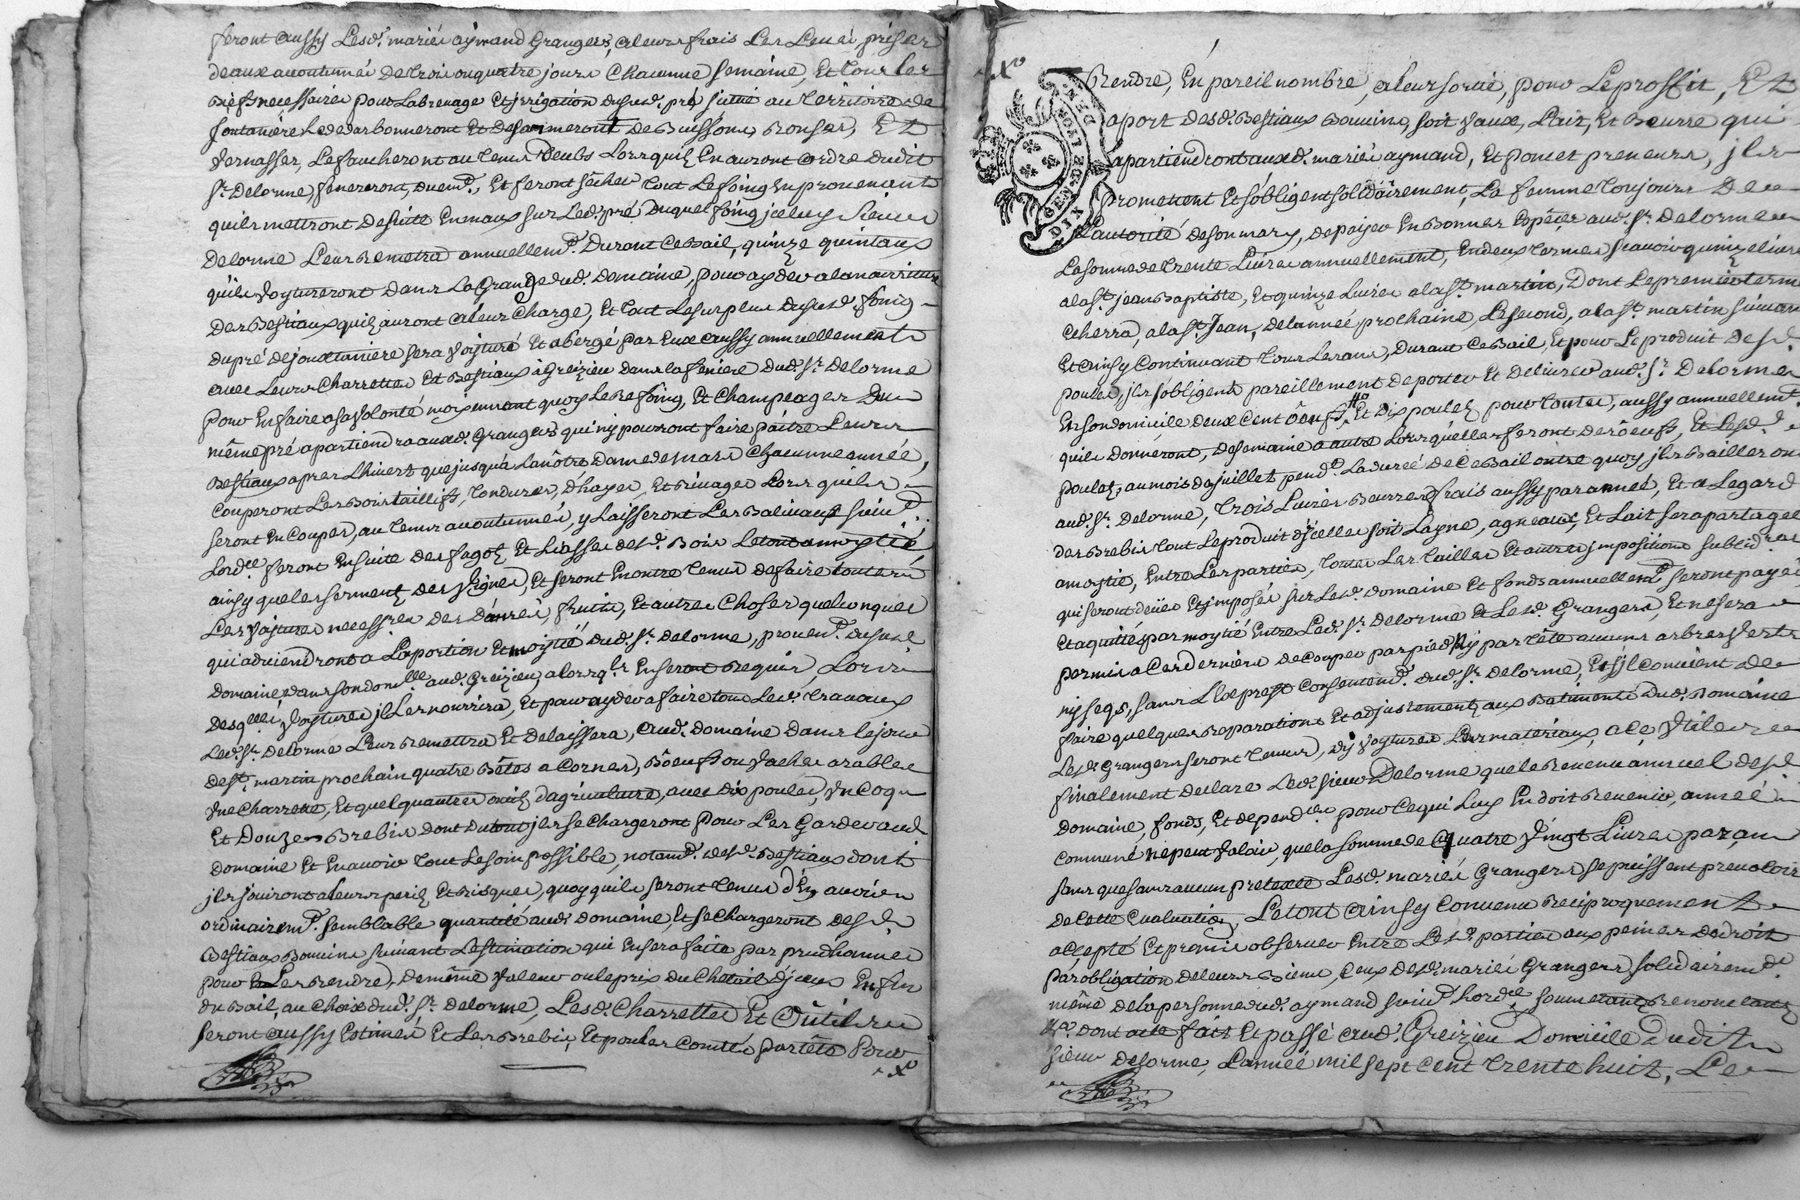 feront aussy Lesd. mariés aymand Grangers, a leurs frais Les Levei priser
deaux acoutumés de trois ou quatre jours Chacunne semaine, Et tous les
biefs necessaires pour Labrenage Et jrrigation dususd. pré situé au territoire de
fontaniere Ledebarbonneront Et desarmeront de Buissons Ronser, Et
vernasser, Le faucheront au tems deubs Lorsquils En auront ordre dudit
Sr. Delorme, feneront, duem., Et feront sécher tout Le foing En provenant
quils mettront de suitte En maux sur Led. pré duquel foing jceluy Sieur
Delorme Leur Remetra annuellemt. Durant Ce Bail, quinze quintaux
quils voytureront dans La Grange dud. Domaine, pour ayder a la nourriture
Des Bestiaux quils auront a leur Charge, Et tout Lesurplus dususd. foing
du pré de fontaniere sera voyturé Et abergé par Eux aussy annuellement
avec Leurs Charrettes Et Bestiaux a Greizieu dans la feniere dud. Sr. Delorme
pour En faire a sa volonté moyennant quoy Le Refoing, Et Champeager Du
même pré apartiendra auxd. Grangers qui ny pourront faire paitre Leurs
Bestiaux apres Lhivert que jusqua La nôtre Dame de mars Chacunne année,
Couperont Les Bois taillifs, tondures, d'hayes, Et Rivages Lors quils
seront En Couper, au tems acoutumés, y Laisseront Les Baliveaux suivt.
Lordce. feront En suite des fagots Et Liasses desd. Bois Le tout a moytié
ainsy que les serments des vignes, Et seront En outre tenus de faire toutes
Les voytures necessres. des danrées, fruits, Et autres Choses quelconques
qui adviendront a La portion Et moytié dud. Sr. Delorme, provent. dususd.
Domaine, dans son domlle. aud. Greizieu, a Lorsqls. En seront Requis, Lors
desqlles. voytures jl Les nourrira, Et pour ayder a faire tous Lesd. travaux
Led. Sr. Delorme Leur Remettra Et delaissera, aud. domaine dans le jour
de St. martin prochain quatre Bêtes a Cornes, Boeufs ou vaches arables
Une Charrette, Et quelquautres outils d'agriculture, avec dix poules, Un Coq
Et Douze Brebis dont du tout jls se Chargeront pour Les Garder aud.
domaine Et En avoir tout Lesoin possible, notamt. desd. Bestiaux dont
jls jouiront a leurs perils Et Risques, quoy quils seront tenus d'En avoir
ordinairemt. semblable quantité aud. domaine, Et se Chargeront desd.
Bestiaux Bouvins suivant Lestimation qui En sera faite par prudhommes
pour Les Rendre, de même valeur ou le prix du Cheteil d'jceux En fin
du Bail, au Choix dud. Sr. Delorme, Lesd. Charrettes Et Outils
seront aussy Estimés Et Les Brebis, Et poules Comtés par têtes Pour
Xo
Xo
Rendre, En pareil nombre, a leur sortie, pour Le proffit, Et
aport desd. Bestiaux Bouvins, soit vaux, Lait, Et Beurre qui
apartiendront auxd. mariés aymand, Et Poncet preneurs, jls
promettent Et s'obligent solidairement, La femme toujours De
L'autorité de son mary, de payer En Bonnes Espéces aud. Sr. Delorme
La somme de trente Livres annuellement, En deux termes sçavoir quinze Livres
a la St. jean Baptiste, Et quinze Livres a la St. martin, Dont Le premier terme
Echerra, a la St. Jean, de lannée prochaine, Le second, a la St. martin suivant
Et ainsy Continuant tous Les ans, Durant Ce Bail, Et pour Le produit desd.
poules, jls sobligent pareillement de porter Et delivrer aud. Sr. Delorme
En son domicile deux Cent Oeufs, Et dix poulets pour toutes, aussy annuellemt.
quils donneront, de semaine a autre Lors quelles feront des oeufs, Et Lesd.
poulets, au mois de juillet pendt. La durée de Ce Bail outre quoy jls Bailleront
aud. Sr. Delorme, trois Livres Beurres frais aussy par année, Et a Legard
des Brebis tout Le produit djcelles soit Layne, agneaux, Et Lait sera partagé
a moytié, Entre Les parties, toutes Les tailles Et autres jmpositions
qui seront deües Et jmposés sur Lesd. domaine Et fonds annuellemt. seront payés
Et aquités par moytié Entre Led. Sr. Delorme Et Lesd. Grangers, Et ne sera
permis a Ces derniers de Couper par pied Ny par tête aucuns arbres verts
ny secs, sans L'Exprest Consentemt. dud. Sr. Delorme, Et sjl Convient de
faire quelques Reparations Et adjustements aux Batiments dud. Domaine
Lesd. Grangers seront tenus, d'y voyturer Les materiaux, a Ce, Utiles
finalement declare Led. Sieur Delorme que le Revenu annuel desd.
Domaine, fonds, Et dependces. pour Ce qui Luy En doit Revenir, année
Commune ne peut valoir, que la somme de quatre vingt Livres par an
sans que sous aucun pretexte Lesd. mariés Grangers se puissent prevaloir
de Cette Evaluation, Le tout ainsy Convenu Reciproquement
accepté Et promis observer Entre Lesd. parties aux peines de droit
par obligation de leurs Biens, Ceux desd. mariés Grangers solidairemt.
même de la personne dud. aymand suivt. Lordce. soumetants Renoncants
dont acte fait Et passé aud. Greizieu Domicile Dudit
Sieur Delorme, L'année mil sept Cent trente huit, Le
GEN. DE LYON
DIX DEN.